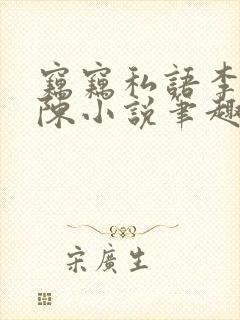 竊竊私語李
陳小說筆趣
宋廣生